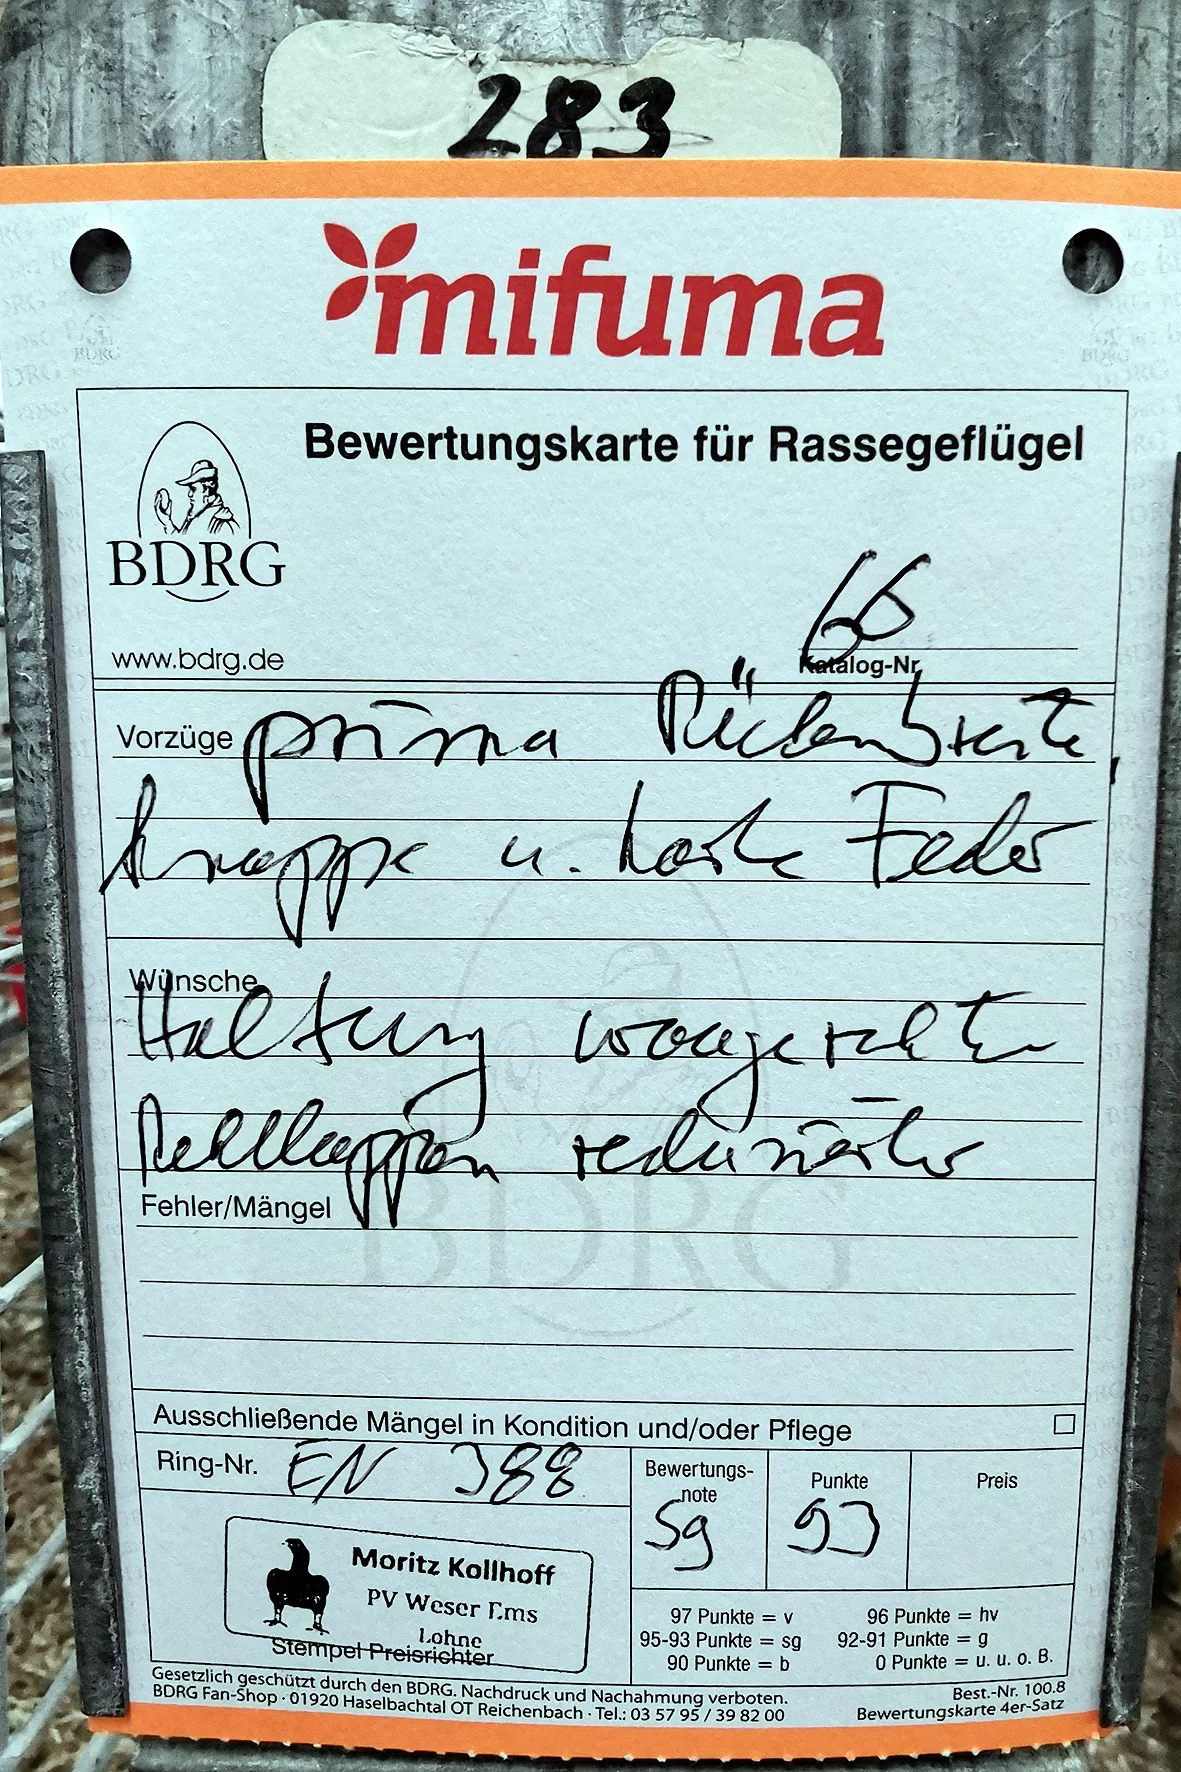 283
mifuma
Bewertungskarte für Rassegeflügel
BDRG
www.bdrg.de
66
Katalog-Nr.
Vorzüge prima Rückenbreite,
knappe u. harte Feder
Wünsche
Haltung waagerechter
Kehllappen reduzierter
Fehler/Mängel
BDRG
Ausschließende Mängel in Kondition und/oder Pflege
Ring-Nr. EN 388
Bewertungs-
note
Sg
Punkte
93
Preis
Moritz Kollhoff
PV Weser Ems
Lohne
Stempel Preisrichter
97 Punkte = v 96 Punkte = hv
95-93 Punkte = sg 92-91 Punkte = g
90 Punkte = b 0 Punkte = u. u. o. B.
Gesetzlich geschützt durch den BDRG. Nachdruck und Nachahmung verboten.
BDRG Fan-Shop · 01920 Haselbachtal OT Reichenbach · Tel.: 03 57 95 / 39 82 00
Best.-Nr. 100.8
Bewertungskarte 4er-Satz